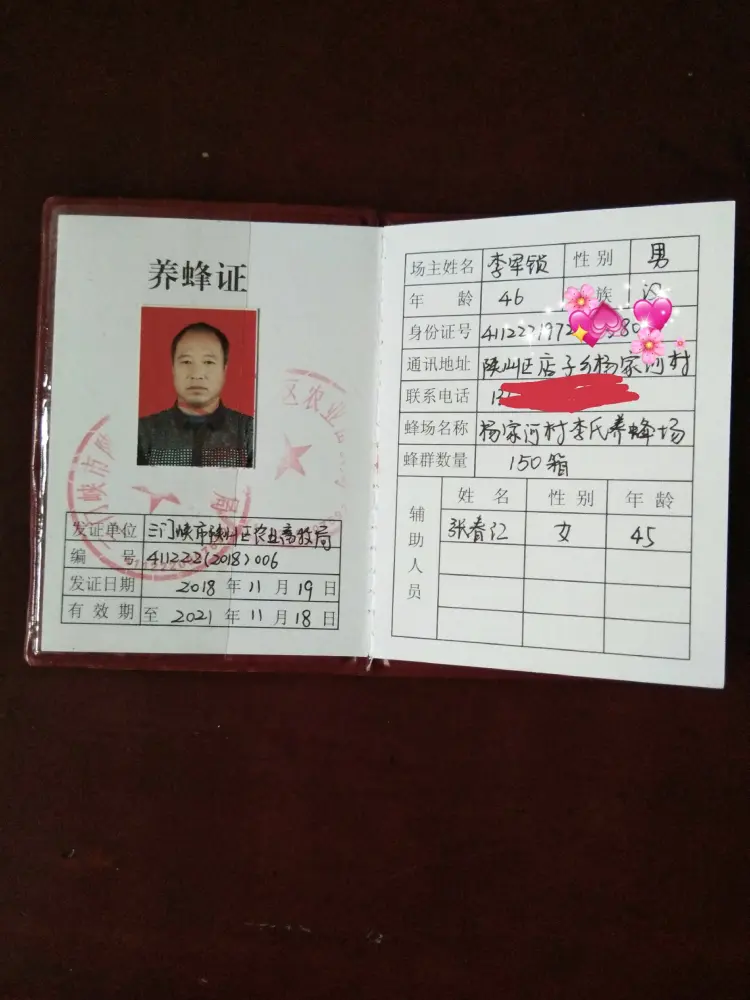 养蜂证
发证单位 三门峡市陕州区农业畜牧局
编号 411222(2018)006
发证日期 2018年11月19日
有效期 至2021年11月18日
场主姓名 李军锁 性别 男
年龄 46 族 汉
身份证号
通讯地址 陕州区店子乡杨家河村
联系电话
蜂场名称 杨家河村李氏养蜂场
蜂群数量 150箱
辅助人员
姓名 性别 年龄
张春 女 45